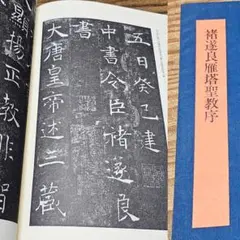 褚遂良雁塔聖教序
五日癸已建
中書令臣褚遂良
書
大唐皇帝述三藏
顯揚正教非